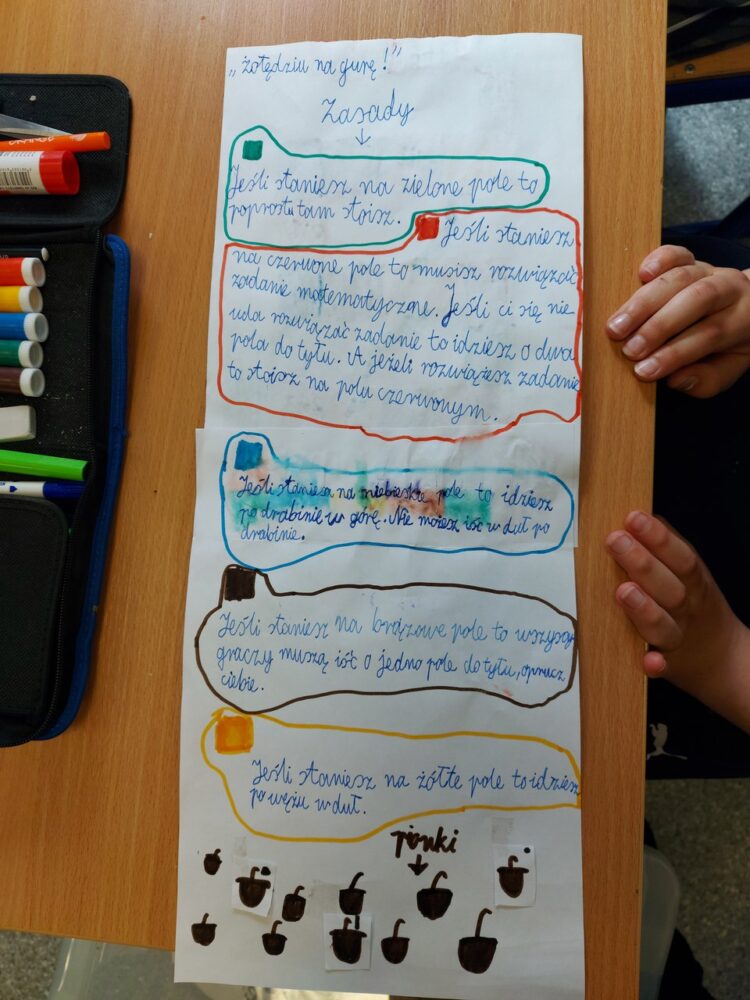 „żołędziu na gurę!”
Zasady
Jeśli staniesz na zielone pole to
poprostu tam stoisz.
Jeśli staniesz
na czerwone pole to musisz rozwiązać
zadanie matematyczne. Jeśli ci się nie
uda rozwiązać zadanie to idziesz o dwa
pola do tyłu. A jeżeli rozwiążesz zadanie
to stoisz na polu czerwonym.
Jeśli staniesz na niebieskie pole to idziesz
po drabinie w górę. Nie możesz iść w duł po
drabinie.
Jeśli staniesz na brązowe pole to wszyscy
graczy muszą iść o jedno pole do tyłu, oprucz
ciebie.
Jeśli staniesz na żółte pole to idziesz
po wężu w duł.
pionki